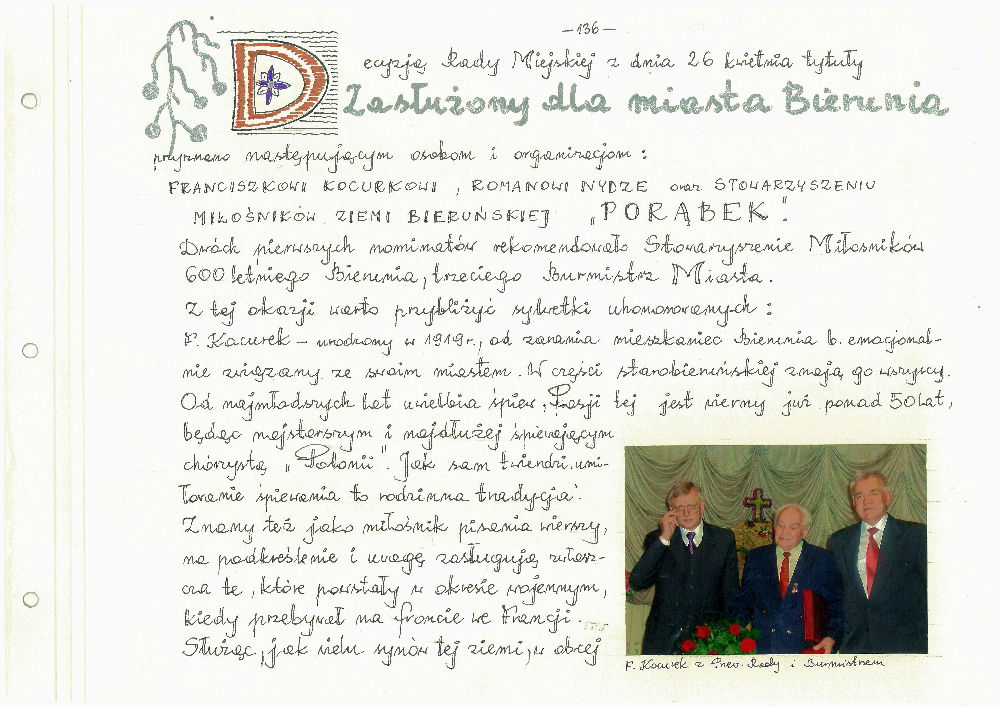 –136–
Decyzją Rady Miejskiej z dnia 26 kwietnia tytuły
Zasłużony dla miasta Bierunia
przyznano następującym osobom i organizacjom :
FRANCISZKOWI KOCURKOWI , ROMANOWI NYDZE oraz STOWARZYSZENIU
MIŁOŚNIKÓW ZIEMI BIERUŃSKIEJ „PORĄBEK".
Dwóch pierwszych nominatów rekomendowało Stowarzyszenie Miłośników
600 letniego Bierunia, trzeciego Burmistrz Miasta.
Z tej okazji warto przybliżyć sylwetki uhonorowanych :
F. Kocurek – urodzony w 1919 r., od zarania mieszkaniec Bierunia b. emocjonal-
nie związany ze swoim miastem. W części starobieruńskiej znają go wszyscy.
Od najmłodszych lat uwielbia śpiew. Pasji tej jest wierny już ponad 50 lat,
będąc najstarszym i najdłużej śpiewającym
chórzystą „Polonii". Jak sam twierdzi „umi-
łowanie śpiewania to rodzinna tradycja".
Znany też jako miłośnik pisania wierszy,
na podkreślenie i uwagę zasługują zwłasz-
cza te, które powstały w okresie wojennym,
kiedy przebywał na froncie we Francji.
Służąc, jak wielu synów tej ziemi, w obcej
F. Kocurek z Przew. Rady i Burmistrzem